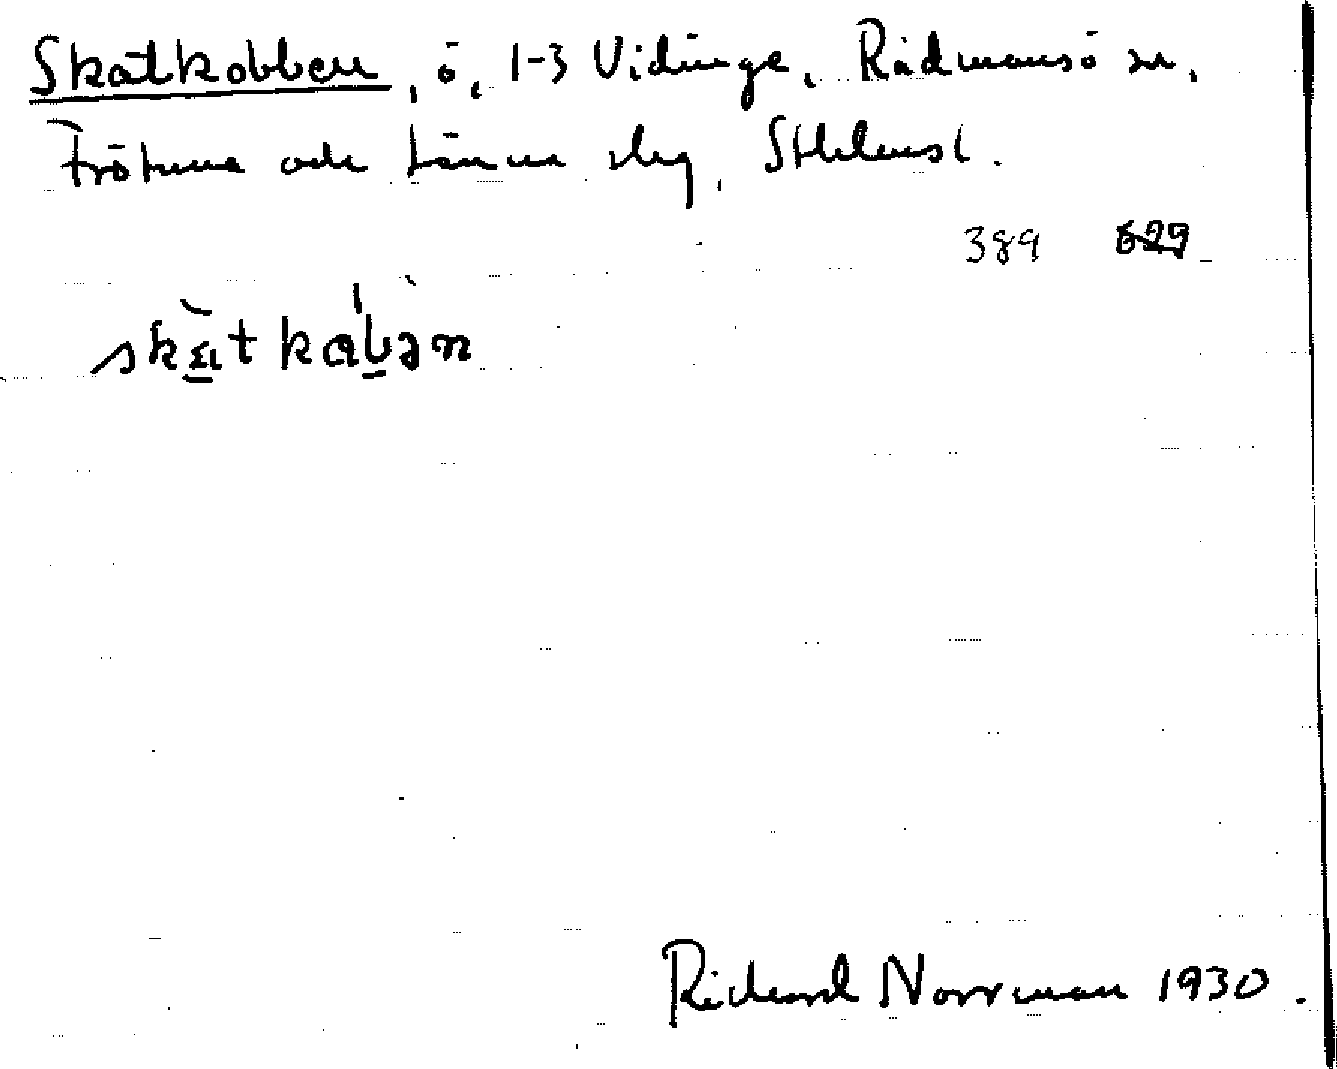 Skatkobben, ö, 1-3 Vidinge, Rådmansö sn,
Frötuna och Länna slg, Sthlmsl.
389 629
skatkabən
Richard Norrman 1930.